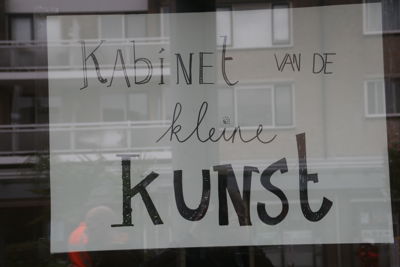 KABINET VAN DE
kleine
KUNST